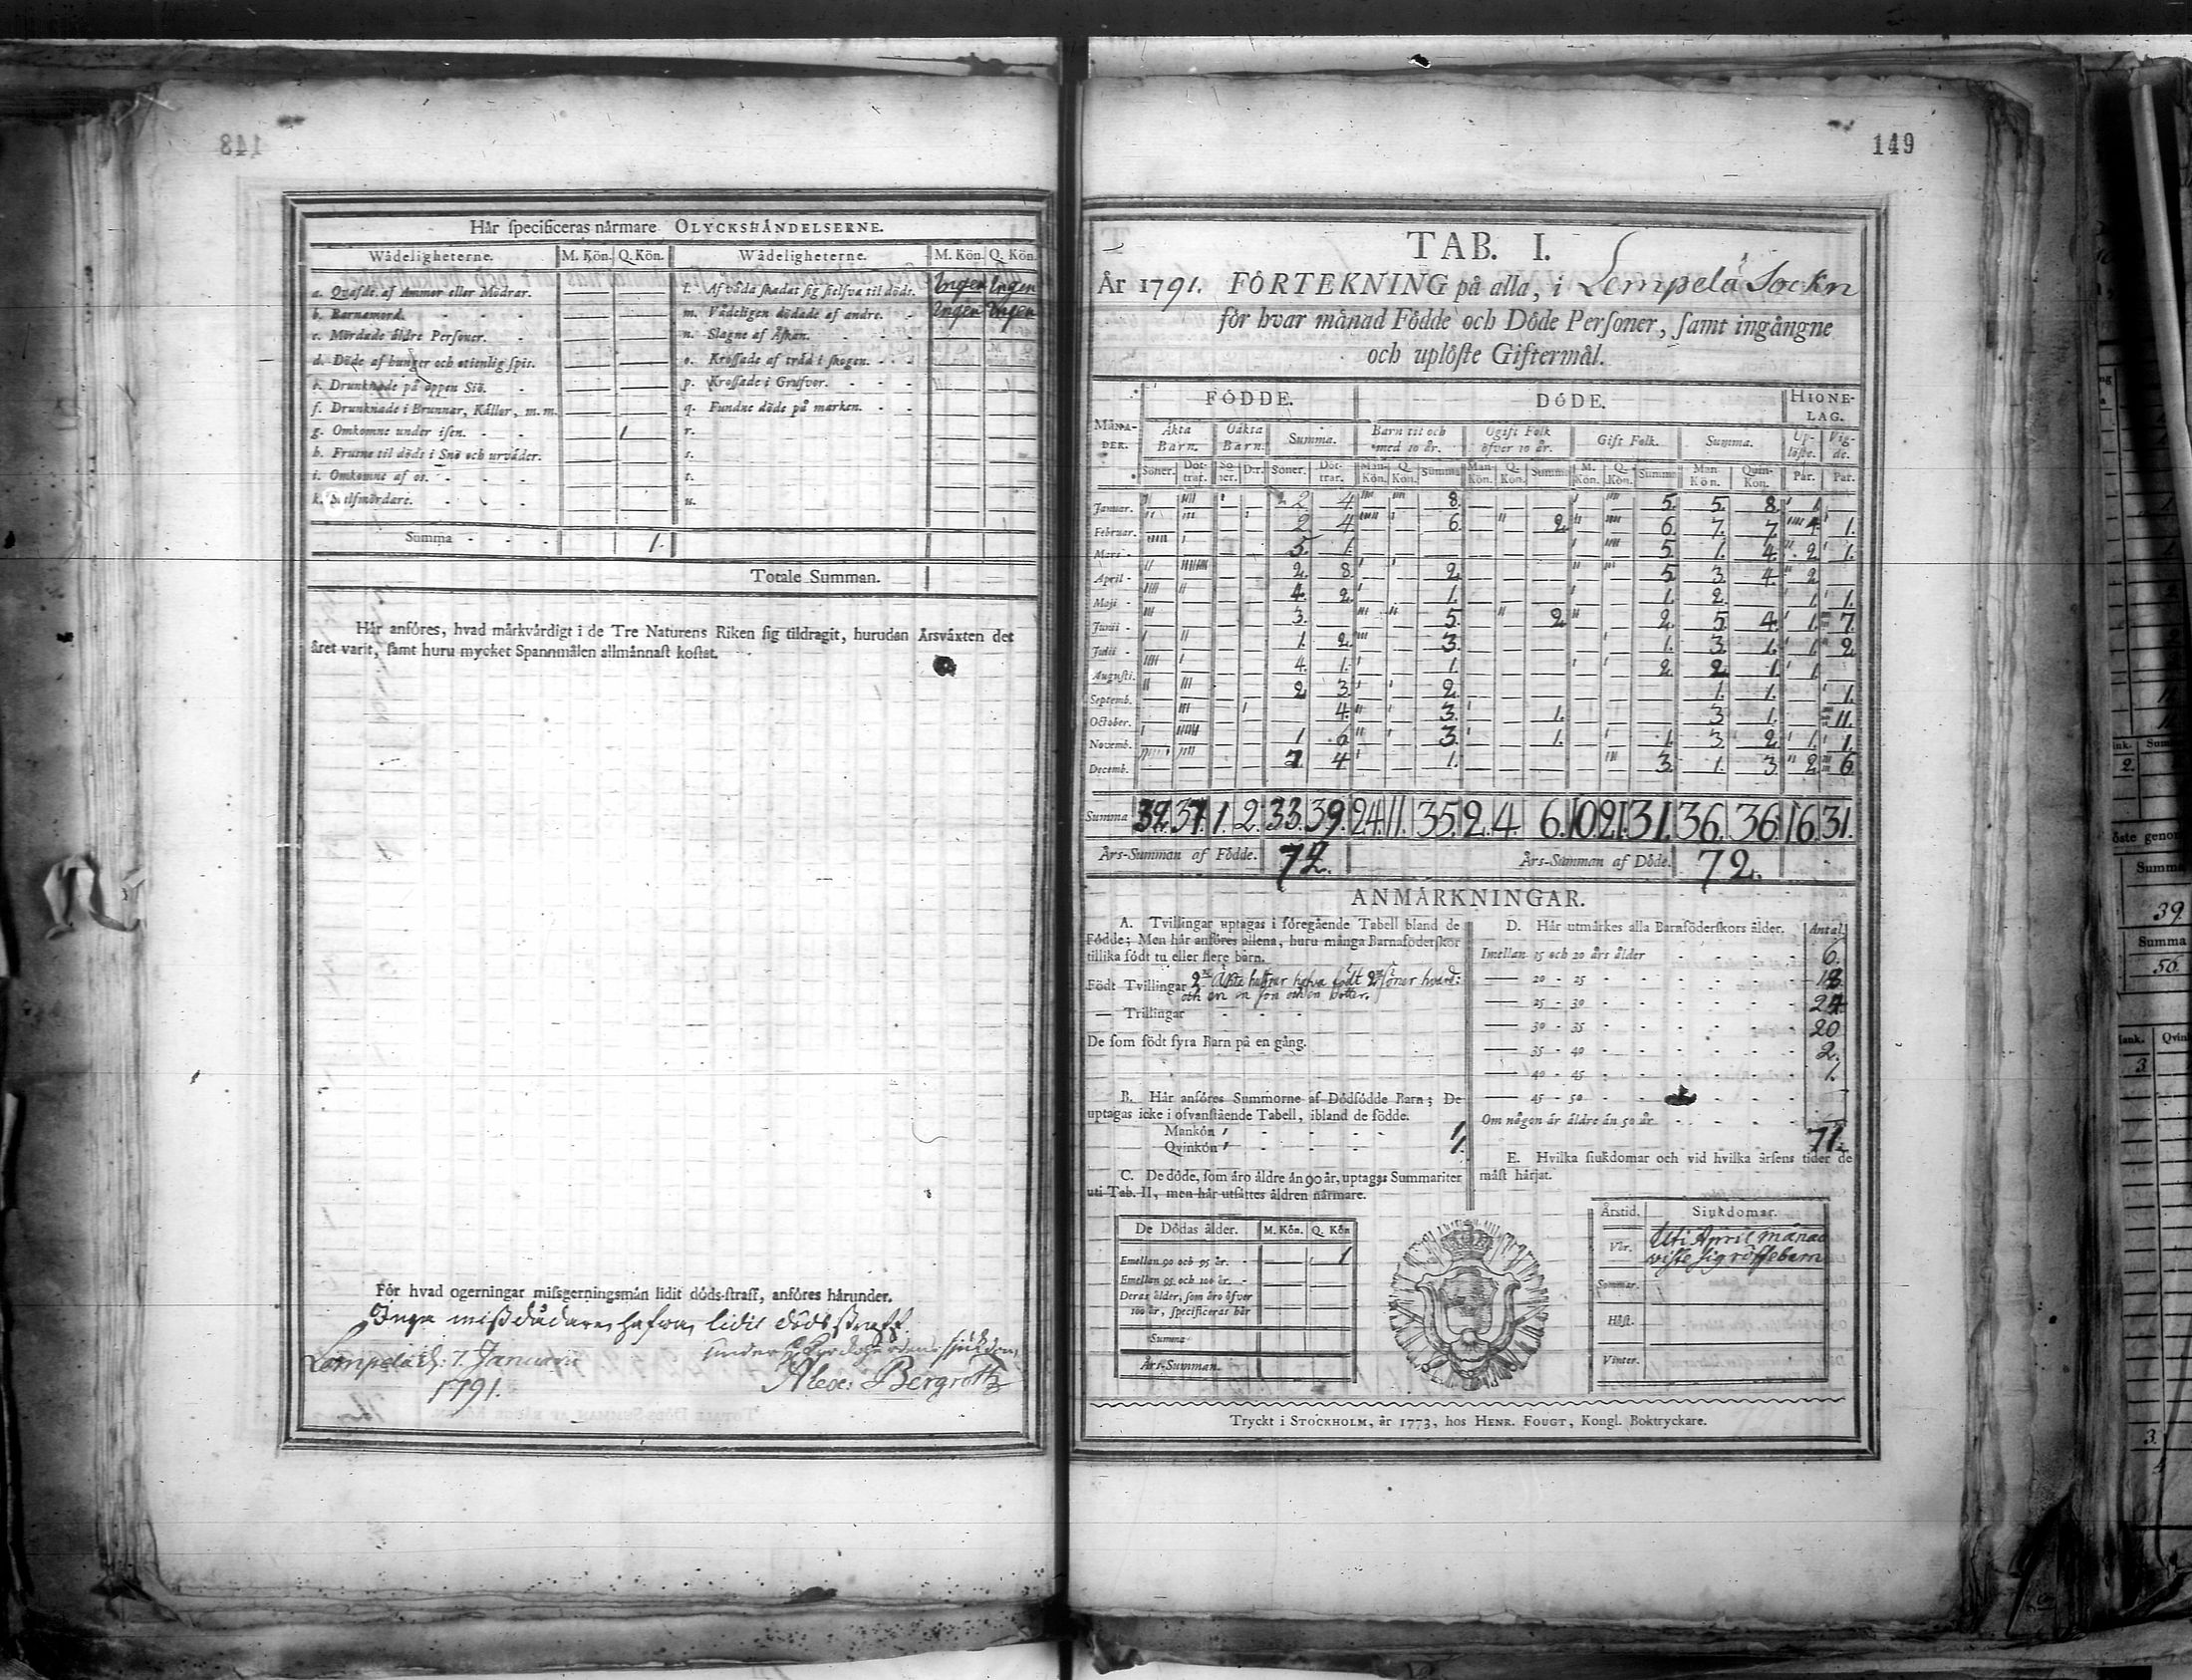 148
Hår specificeras nårmare OLYCKSHÅNDELSERNE.
Wådeligheterne. M. Kön. Q. Kön. Wådeligheterne. M. Kön. Q. Kön.
a. Qvafde af Ammor eller Mödrar. l. Af våda skadat sig sielfva til döds. Ingen Ingen
b. Barnamord. m. Vådeligen dödade af andre. Ingen Ingen
c. Mördade åldre Personer. n. Slagne af Åskan.
d. Döde af hunger och otienlig spis. o. Krossade af tråd i skogen.
e. Drunknade på öppen Siö. p. Krossade i Grufvor.
f. Drunknade i Brunnar, Kållor, m. m. q. Fundne döde på marken.
g. Omkomne under isen. 1 r.
h. Frusne til döds i Snö och urvåder. s.
i. Omkomne af os. t.
k. Sielfmördare. u.
Summa 1.
Totale Summan.
Hår anföres, hvad mårkvårdigt i de Tre Naturens Riken sig tildragit, hurudan Årsvåxten det
året varit, samt huru mycket Spannmålen allmånnast kostat.
För hvad ogerningar missgerningsmån lidit döds-straff, anföres hårunder.
Inga missdådare hafva lidit dödsstraff.
Lempelä d. 7. Januarii
1791.
Bergroth
149
TAB. I.
År 1791. FÖRTEKNING på alla, i Lempelä Sockn
för hvar månad Födde och Döde Personer, samt ingångne
och uplöste Giftermål.
MÅNADER. FÖDDE. DÖDE. HIONELAG.
Åkta Barn. Oåkta Barn. Summa. Barn til och med 10 år. Ogift Folk öfver 10 år. Gift Folk. Summa. Uplöste. Vigde.
Söner. Döttrar. Söner. D:r. Söner. Döttrar. Mankön. Q. Kön. Summa Mankön. Q. Kön. Summa M. Kön. Q. Kön. Summa Man Kön. Quinkön. Pår. Par.
Januar. 2 4 8. 5. 5. 8. 1.
Februar. 2 4 6. 2. 6. 7. 7. 4. 1.
Mars 5. 1. 5. 1. 4. 2. 1.
April 2. 8. 2. 5. 3. 4. 2
Maji 4. 2. 1. 1. 2. 1. 1.
Junii 3. 5. 2. 2. 5. 4. 1. 7.
Julii 1. 2. 3. 1. 3. 1. 1. 2.
Augusti. 4. 1. 1. 2. 2. 1. 1.
Septemb. 2 3. 2. 1. 1. 1.
October. 4. 3. 1. 3 1. 11.
Novemb. 1 6. 3. 1. 1. 3. 2. 1. 1.
Decemb. 7. 4 1. 3. 1. 3. 2. 6.
Summa 32. 37. 1. 2. 33. 39. 24. 11. 35. 2. 4 6. 10. 21. 31. 36. 36. 16. 31.
Års-Summan af Födde. 72. Års-Summan af Döde. 72.
ANMÅRKNINGAR.
A. Tvillingar uptagas i föregående Tabell bland de
Födde; Men hår anföres allena, huru många Barnaföderskor
tillika födt tu eller flere barn.
Födt Tvillingar 2 Äkta hustrur hafva födt 2 söner hvard:
och en en son och en dotter.
— Trillingar
De som födt fyra Barn på en gång.
B. Hår anföres Summorne af Dödfödde Barn; De
uptagas icke i ofvanstående Tabell, ibland de födde.
Mankön 1.
Qvinkön 1.
C. De döde, som åro åldre ån 90 år, uptagas Summariter
uti Tab. II, men hår utsåttes åldren nårmare.
De Dödas ålder. M. Kön. Q. Kön
Emellan 90 och 95 år. 1
Emellan 95 och 100 år.
Deras ålder, som åro öfver
100 år, specificeras hår
Summa
Års-Summan.
D. Hår utmårkes alla Barnföderskors ålder. Antal
Imellan 15 och 20 års ålder 6.
— 20 - 25 18.
— 25 - 30 24
— 30 - 35 20
— 35 - 40 2.
— 40 - 45 1.
— 45 - 50
Om någon år åldre ån 50 år
71.
E. Hvilka siukdomar och vid hvilka årsens tider de
måst hårjat.
Årstid. Siukdomar.
Vår. Uti April månad
viste sig rosse barn
Sommar.
Höst.
Vinter.
Tryckt i STOCKHOLM, år 1773, hos HENR. FOUGT, Kongl. Boktryckare.
Summa
39.
Summa
56.